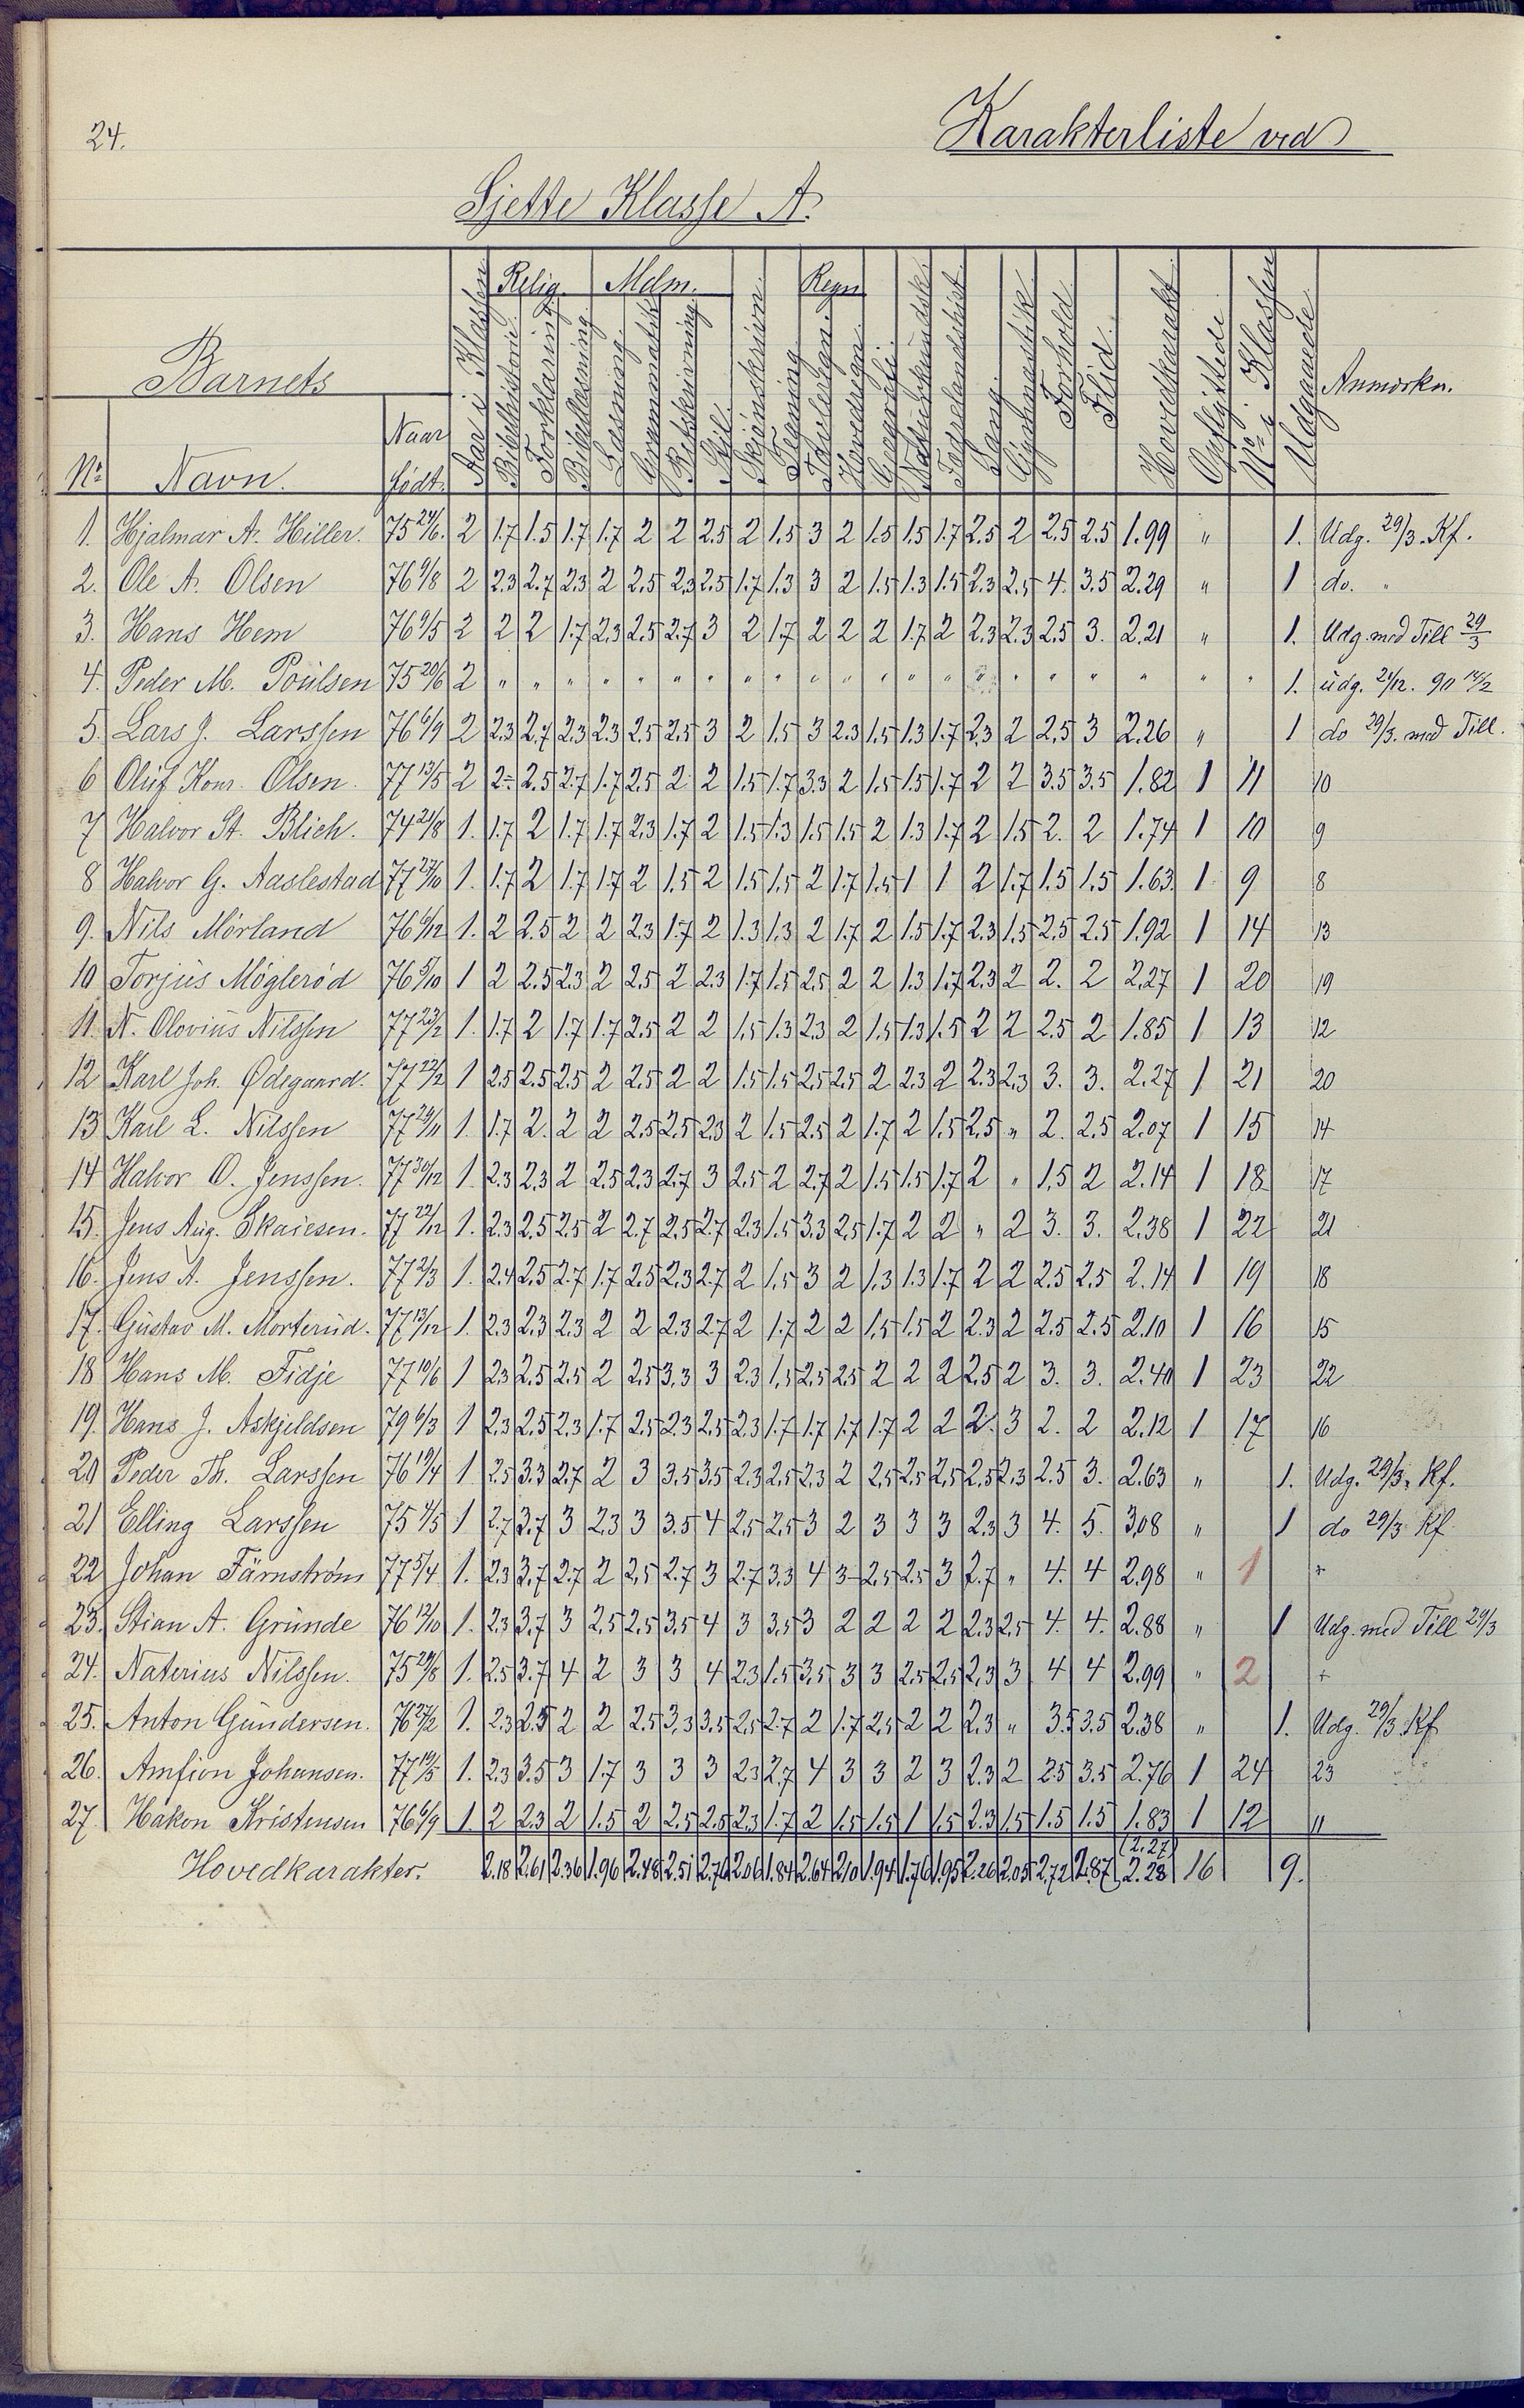 24.
Karakterliste ved
Sjette Klasse A.
Barnets
Nr. Navn. Naar født. Aar i Klassen Relig. Bibelhistorie. Forklaring. Bibellæsning Mdm. Læsning. Grammatik Retskrivning Stil. Skjønskrivn. Tegning. Regn Tavleregn. Hovedregn. Geografi. Naturkundsk. Fædrelandshist. Sang. Gymnastik Forhold Flid. Hovedkarakt. Opflyttede No. i Klassen Udgaaede. Anmærkn.
1. Hjalmar A. Hiller. 75 24/6. 2 1.7 1.5 1.7 1.7 2 2 2.5 2 1.5 3 2 1.5 1.5 1.7 2.5 2 2.5 2.5 1.99 " 1. Udg. 29/3. Kf.
2. Ole A. Olsen 76 9/8 2 2.3 2.7 2.3 2 2.5 2.3 2.5 1.7 1.3 3 2 1.5 1.3 1.5 2.3 2.5 4. 3.5 2.29 " 1 do. "
3. Hans Hem 76 9/5 2 2 2 1.7 2.3 2.5 2.7 3 2 1.7 2 2 2 1.7 2 2.3 2.3 2.5 3. 2.21 " 1. Udg. med Till 29/3
4. Peder M. Poulsen 75 20/6 2 " " " " " " " " " " " " " " " " " " " " " 1. udg. 2/12. 90 14/2
5. Lars J. Larssen 76 6/9 2 2.3 2.7 2.3 2.3 2.5 2.5 3 2 1.5 3 2.3 1.5 1.3 1.7 2.3 2 2.5 3 2.26 " 1 do 29/3. med Till.
6 Oluf Konr. Olsen. 77 13/5 2 2- 2.5 2.7 1.7 2.5 2 2 1.5 1.7 3.3 2 1.5 1.5 1.7 2 2 3.5 3.5 1.82 1 11 10
7 Halvor St. Blich. 74 21/8 1. 1.7 2 1.7 1.7 2.3 1.7 2 1.5 1.3 1.5 1.5 2 1.3 1.7 2 1.5 2. 2 1.74 1 10 9
8 Halvor G. Aaslestad 77 27/10 1. 1.7 2 1.7 1.7 2 1.5 2 1.5 1.5 2 1.7 1.5 1 1 2 1.7 1.5 1.5 1.63. 1 9 8
9. Nils Mörland 76 6/12 1. 2 2.5 2 2 2.3 1.7 2 1.3 1.3 2 1.7 2 1.5 1.7 2.3 1.5 2.5 2.5 1.92 1 14 13
10 Torjus Möglerød 76 5/10 1 2 2.5 2.3 2 2.5 2 2.3 1.7 1.5 2.5 2 2 1.3 1.7 2.3 2 2. 2 2.27 1 20 19
11. N. Olovius Nilssen 77 23/2 1. 1.7 2 1.7 1.7 2.5 2 2 1.5 1.3 2.3 2 1.5 1.3 1.5 2 2 2.5 2 1.85 1 13 12
12 Karl Joh. Ødegaard. 77 22/2 1 2.5 2.5 2.5 2 2.5 2 2 1.5 1.5 2.5 2.5 2 2.3 2 2.3 2.3 3. 3. 2.27 1 21 20
13 Karl L. Nilssen 77 29/11 1. 1.7 2. 2 2 2.5 2.5 2.3 2 1.5 2.5 2 1.7 2 1.5 2.5 " 2. 2.5 2.07 1 15 14
14 Halvor O. Jenssen. 77 30/12 1 2.3 2.3 2 2.5 2.3 2.7 3 2.5 2 2.7 2 1.5 1.5 1.7 2 " 1.5 2 2.14 1 18 17
15. Jens Aug. Skaiesen. 77 22/12 1. 2.3 2.5 2.5 2 2.7 2.5 2.7 2.3 1.5 3.3 2.5 1.7 2 2 " 2 3. 3. 2.38 1 22 21
16. Jens A. Jenssen. 77 2/3 1. 2.4 2.5 2.7 1.7 2.5 2.3 2.7 2 1.5 3 2 1.3 1.3 1.7 2 2 2.5 2.5 2.14 1 19 18
17. Gustav M. Morterud. 77 13/12 1. 2.3 2.3 2.3 2 2 2.3 2.7 2 1.7 2 2 1.5 1.5 2 2.3 2 2.5 2.5 2.10 1 16 15
18 Hans M. Fidje 77 10/6 1 2.3 2.5 2.5 2 2.5 3.3 3 2.3 1.5 2.5 2.5 2 2 2 2.5 2 3. 3. 2.40 1 23 22
19. Hans J. Askjeldsen 79 6/3 1 2.3 2.5 2.3 1.7 2.5 2.3 2.5 2.3 1.7 1.7 1.7 1.7 2 2 2. 3 2. 2 2.12 1 17 16
20 Peder Th. Larssen 76 19/4 1 2.5 3.3 2.7 2 3 3.5 3.5 2.3 2.5 2.3 2 2.5 2.5 2.5 2.5 2.3 2.5 3. 2.63 " 1. Udg. 29/3. Kf.
21 Elling Larssen 75 4/5 1 2.7 3.7 3 2.3 3 3.5 4 2.5 2.5 3 2 3 3 3 2.3 3 4. 5. 3.08 " 1 do 29/3 Kf
22 Johan Färnström 77 5/4 1. 2.3 3.7 2.7 2 2.5 2.7 3 2.7 3.3 4 3- 2.5 2.5 3 2.7 " 4. 4 2.98 " 1 +
23. Stian A. Grunde 76 13/10 1. 2.3 3.7 3 2.5 2.5 3.5 4 3 3.5 3 2 2 2 2 2.3 2.5 4. 4. 2.88 " 1 Udg. med Till 29/3
24. Naterius Nilssen. 75 29/8 1. 2.5 3.7 4 2 3 3 4 2.3 1.5 3.5 3 3 2.5 2.5 2.3 3 4 4 2.99 " 2 +
25. Anton Gundersen. 76 27/2 1. 2.3 2.5 2 2 2.5 3.3 3.5 2.5 2.7 2 1.7 2.5 2 2 2.3 " 3.5 3.5 2.38 " 1. Udg. 29/3 Kf
26. Amfion Johansen. 77 19/5 1. 2.3 3.5 3 1.7 3 3 3 2.3 2.7 4 3 3 2 3 2.3 2 2.5 3.5 2.76 1 24 23
27. Håkon Kristensen 76 6/9 1. 2 2.3 2 1.5 2 2.5 2.5 2.3 1.7 2 1.5 1.5 1 1.5 2.3 1.5 1.5 1.5 1.83 1 12 11
(2.27)
Hovedkarakter. 2.18 2.61 2.36 1.96 2.48 2.51 2.70 2.06 1.84 2.64 2.10 1.94 1.76 1.95 2.26 2.05 2.72 2.87 2.28 16 9.